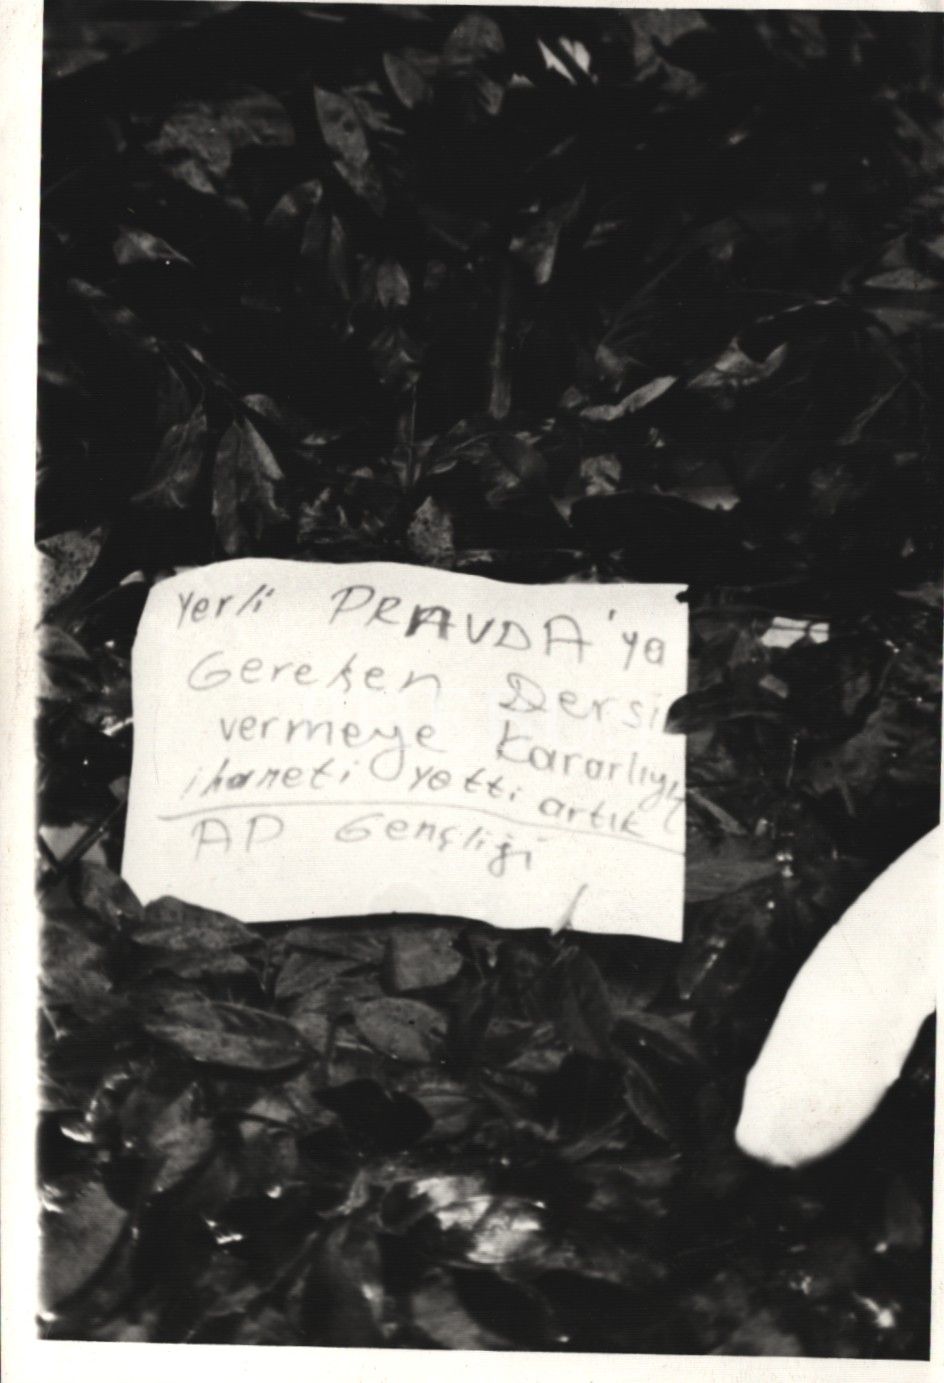 Yerli PRAVDA'ya
Gereken Dersi
vermeye Kararlıyız
ihaneti yetti artık
AP Gençliği